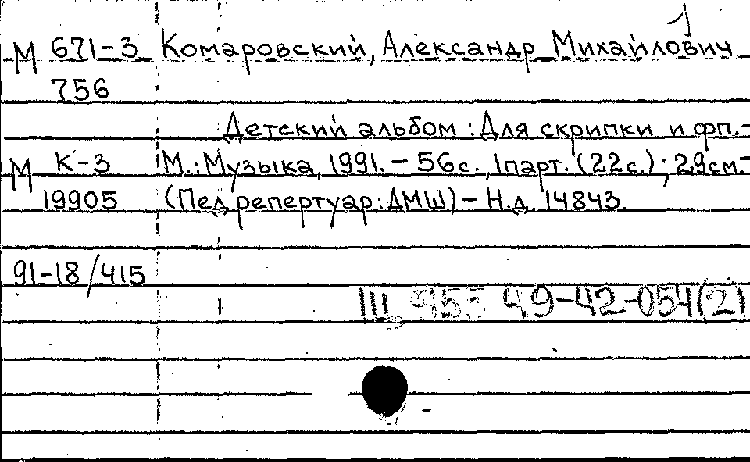 1
М 671-3 Комаровский, Александр Михайлович
756
Детский альбом : Для скрипки и фп.-
М К-3 М.: Музыка, 1991. – 56с., 1парт. (22с.) ; 29см.-
19905 (Пед. репертуар: ДМШ) – Н.д. 14843.
91-18/415
Ш 49-42-054(2)